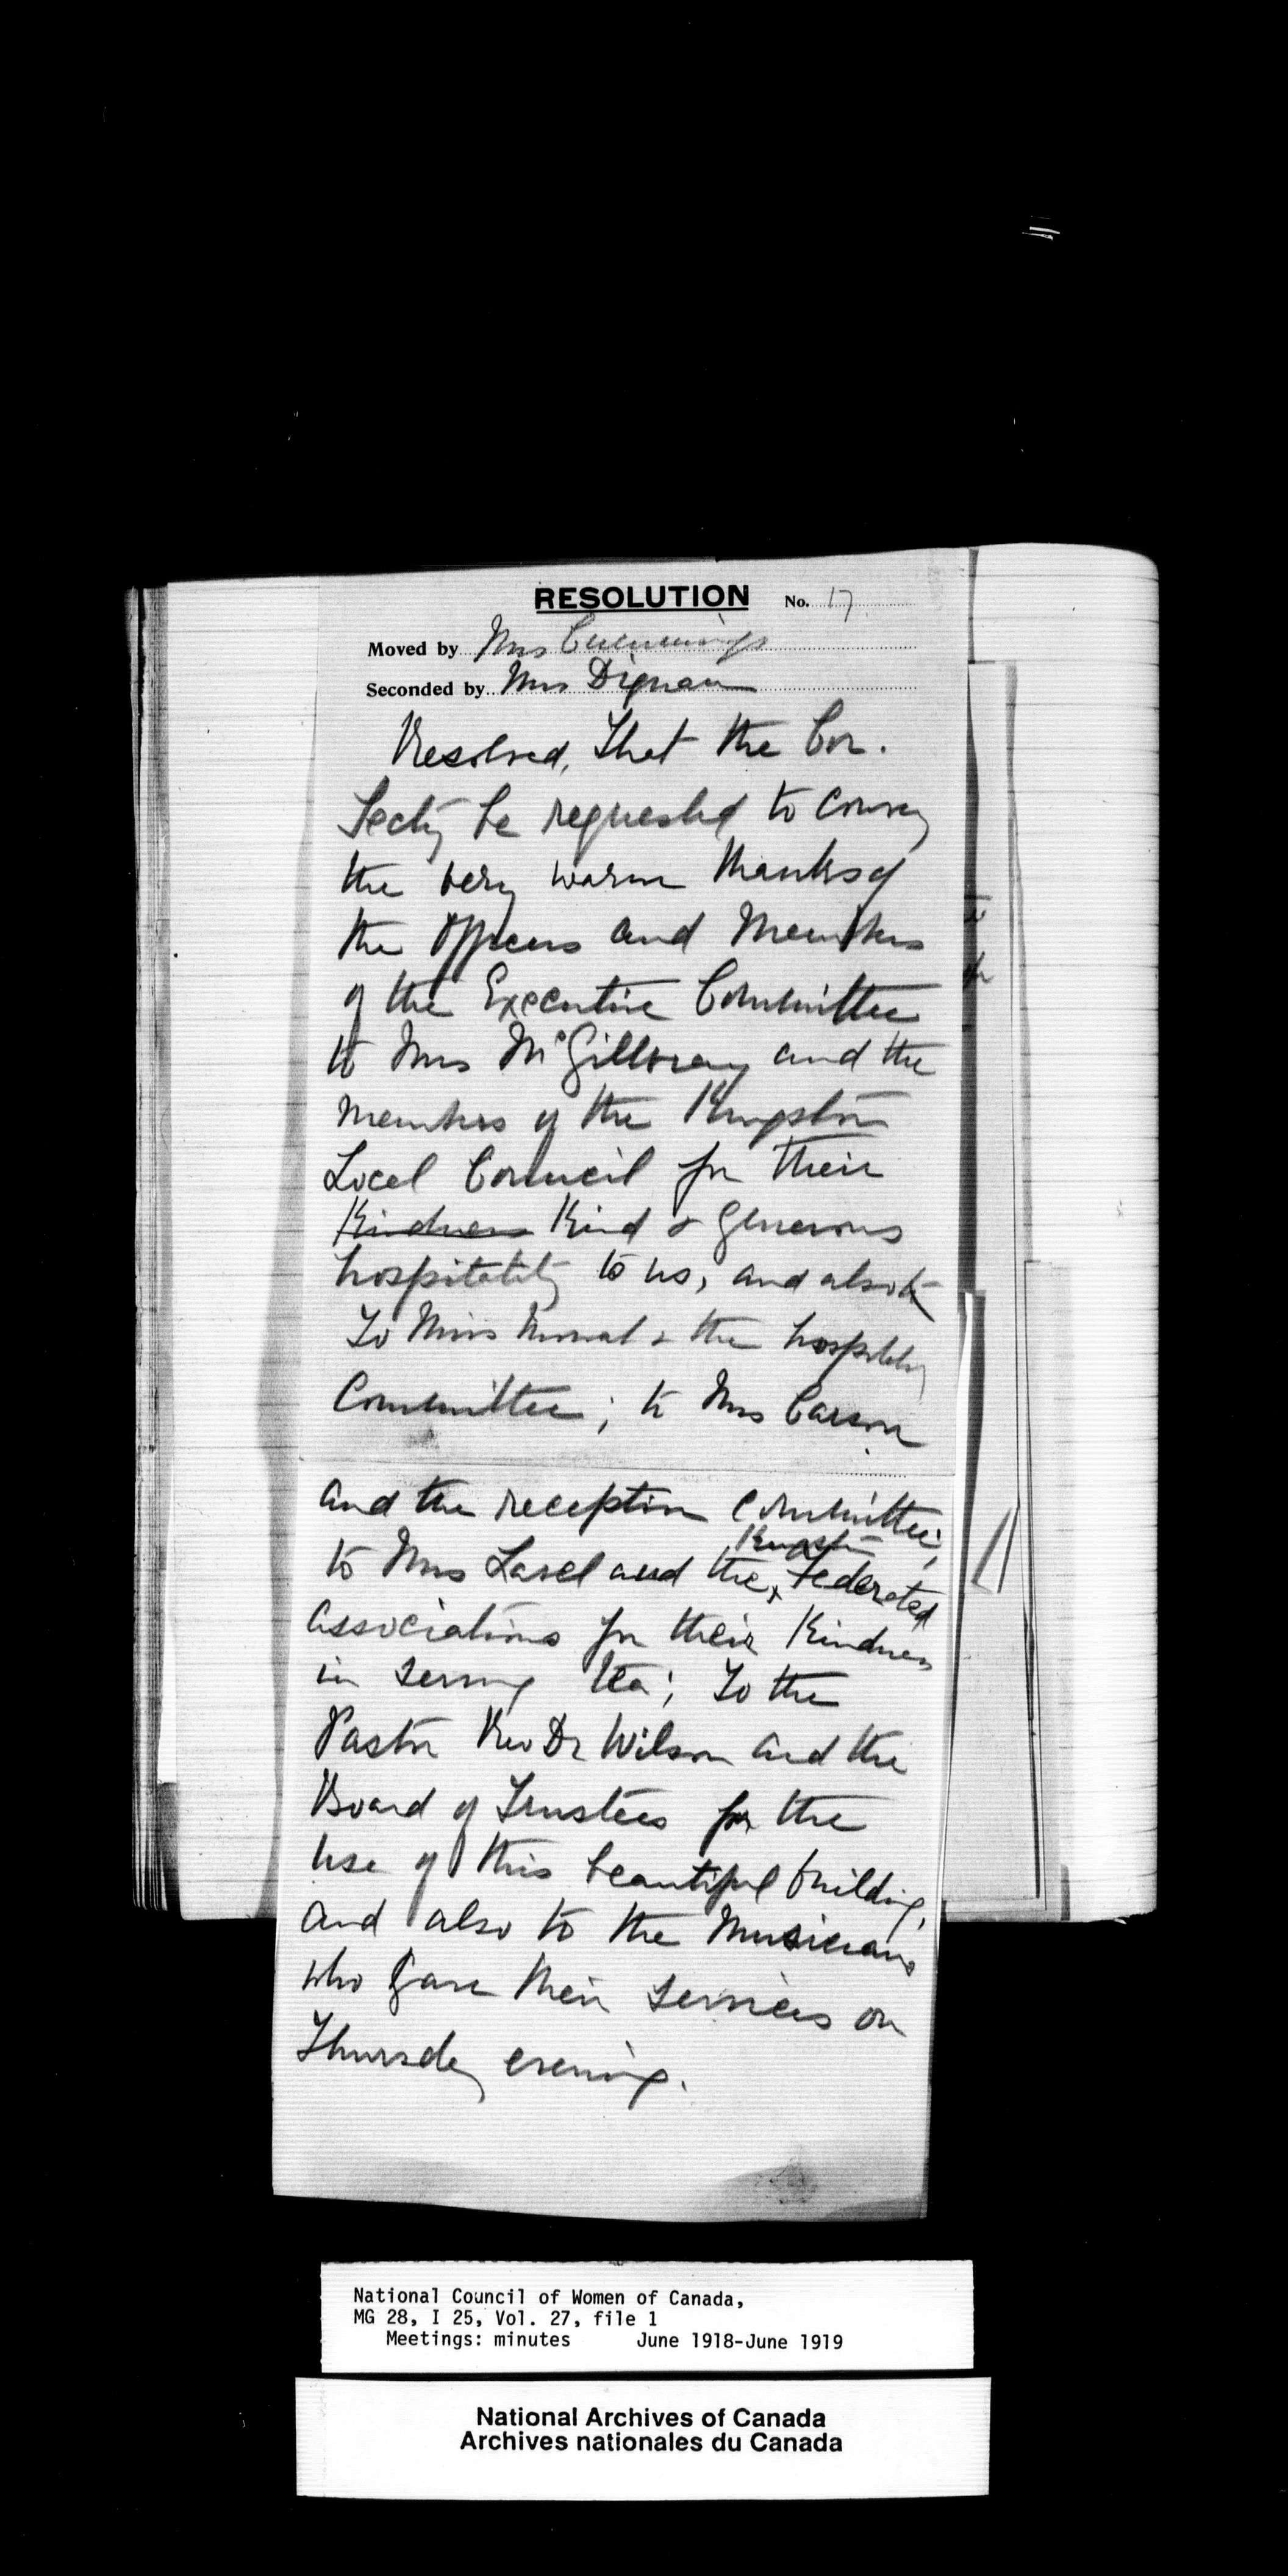 RESOLUTION No. 17
Moved by Mrs Cummings
Seconded by Mrs Dignam
Resolved, That the Cor.
Secty be requested to convey
the very warm thanks of
the Officers and Members
of the Executive Committee
to Mrs McGillivray and the
members of the Kingston
Local Council for their
Kindness Kind & generous
hospitality to us, and also to
To Miss Mowat & the hospitality
Committee; to Mrs Carson
and the reception committee;
Kingston
to Mrs and the Federated
associations for their Kindness
in serving tea; To the
Pastor Rev Dr Wilson and the
Board of Trustees for the
use of this beautiful building,
and also to the Musicians
who gave their services on
Thursday evening.
National Council of Women of Canada,
MG 28, I 25, Vol. 27, file 1
Meetings: minutes June 1918-June 1919
National Archives of Canada
Archives nationales du Canada